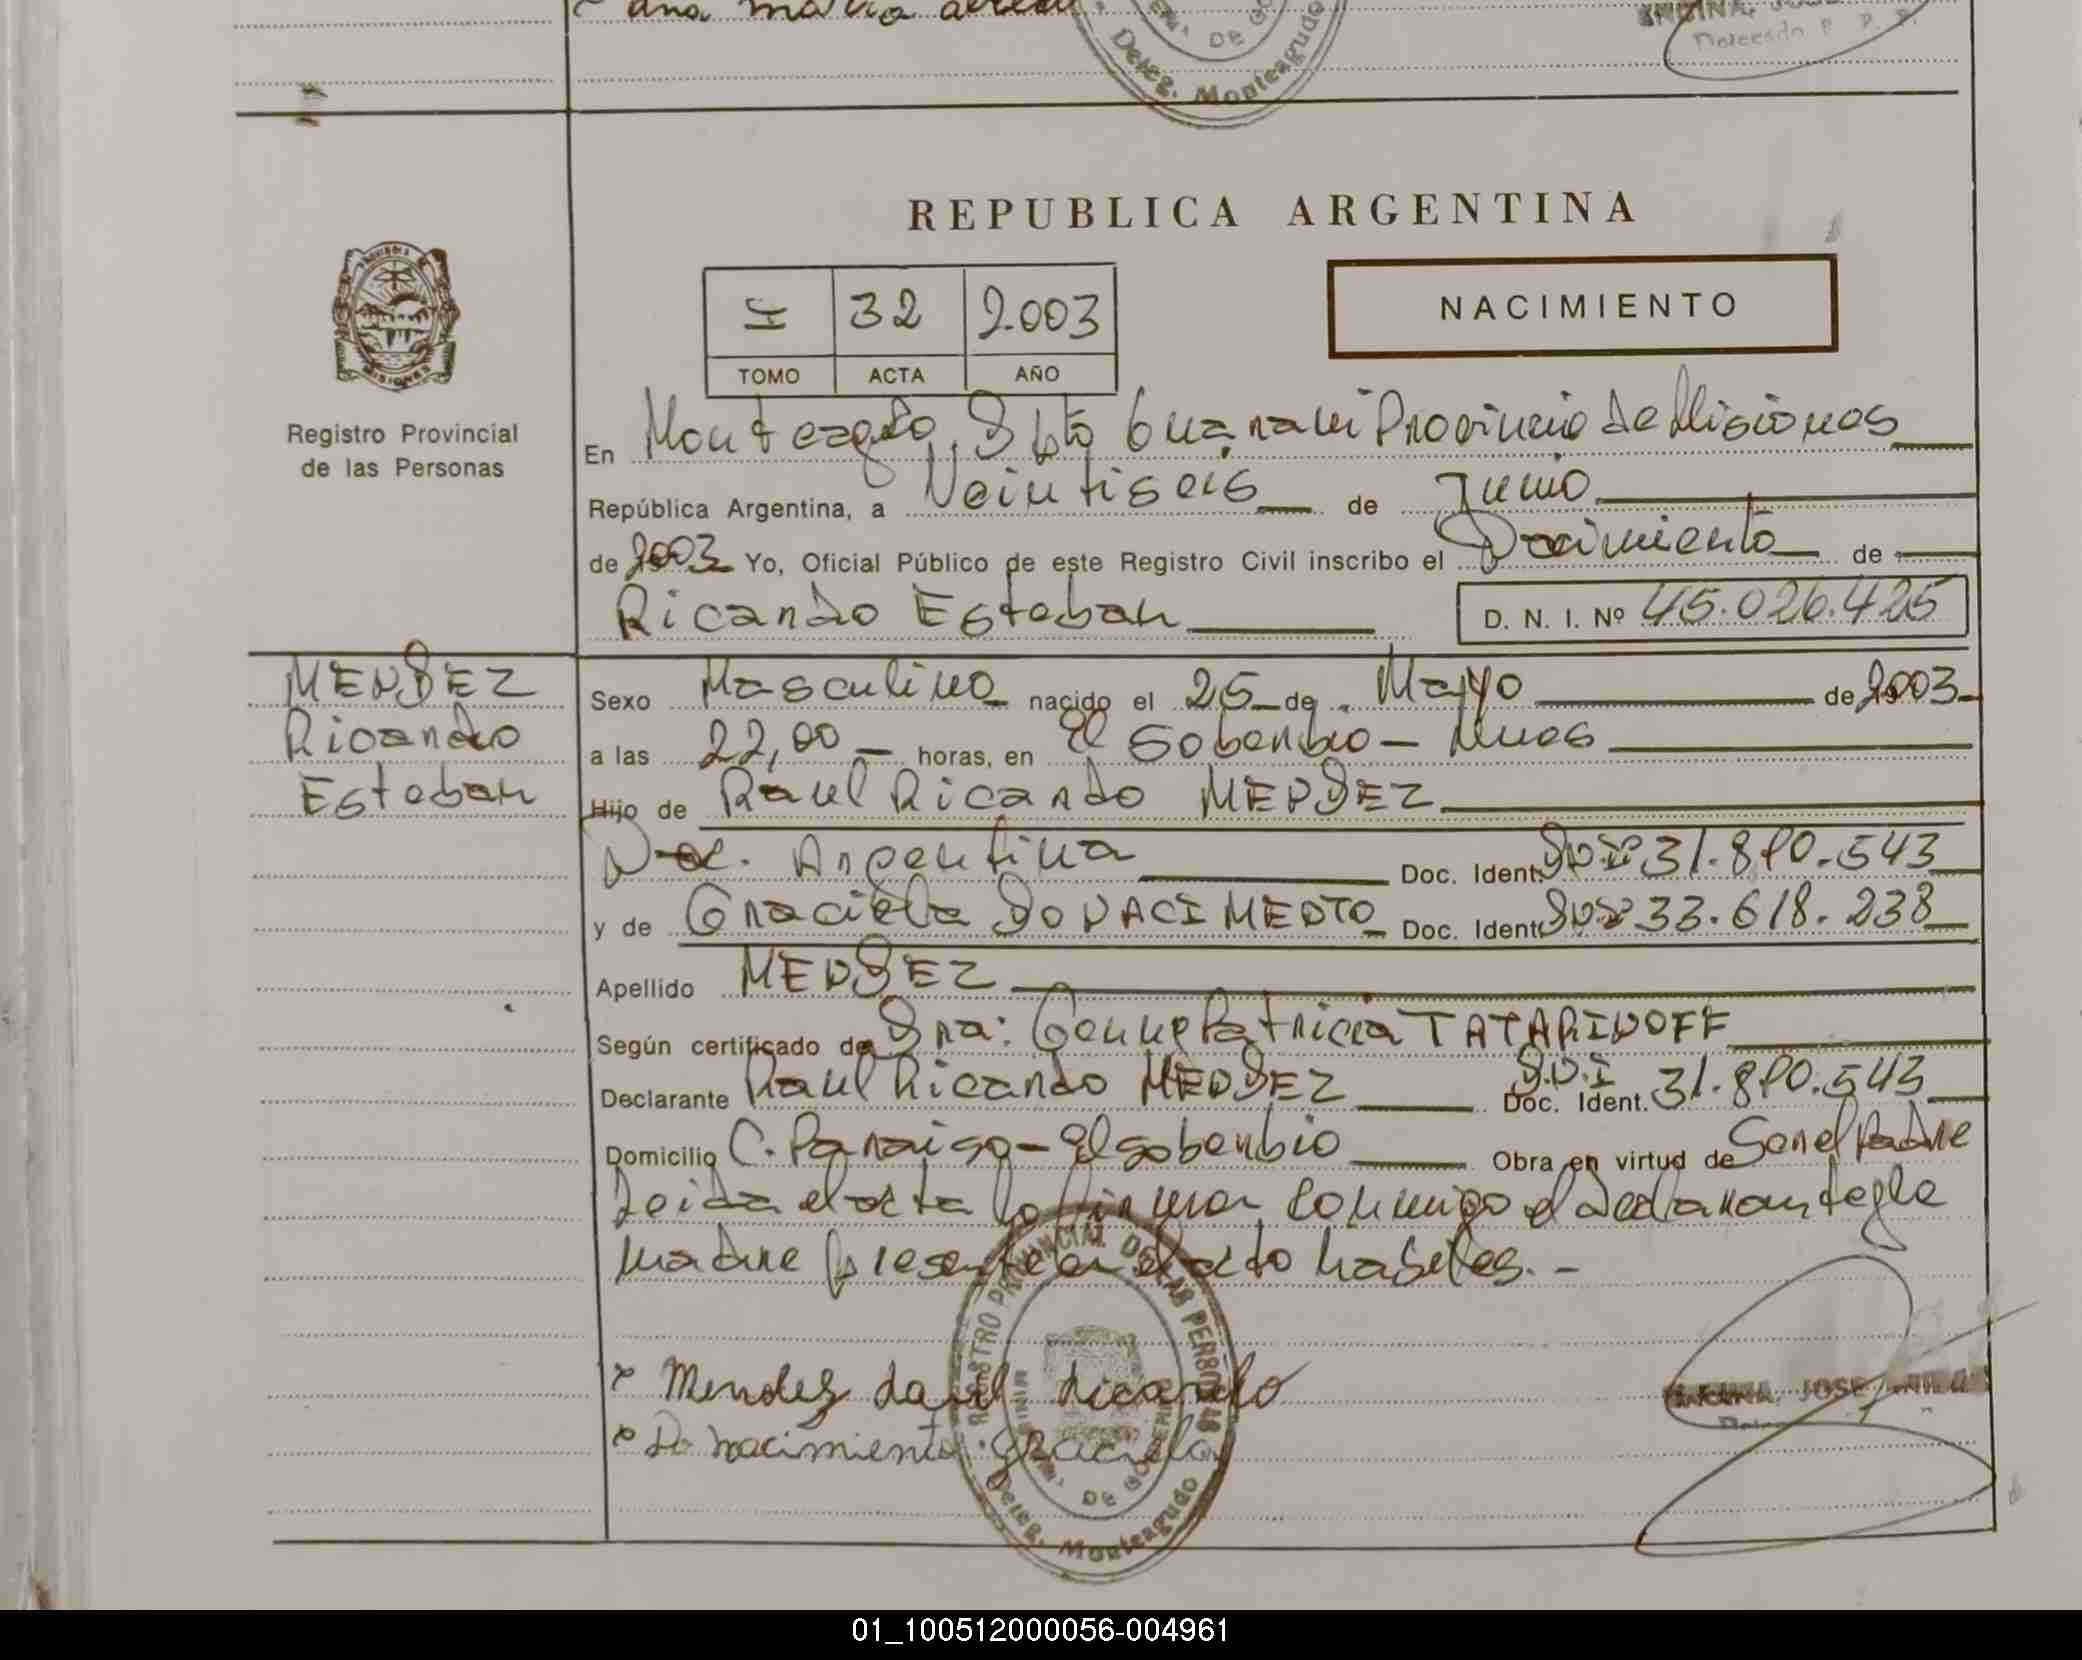 Ana maria
DE GO
Deleg. Monteagudo
REPUBLICA ARGENTINA
I 32 2.003
TOMO ACTA AÑO
NACIMIENTO
MISIONES
Registro Provincial
de las Personas
En Monteagudo, Dpto Guarani Provincia de Misiones
República Argentina, a Veintiseis de Junio
de 2003 Yo, Oficial Público de este Registro Civil inscribo el Nacimiento de
Ricardo Esteban D. N. I. Nº 45.026.425
MENDEZ
Ricardo
Esteban
Sexo Masculino nacido el 25 de Mayo de 2003
a las 22,00 horas, en El Soberbio - Mnes
Hijo de Raul Ricardo MENDEZ
Nac. Argentina Doc. Ident. DNI 31.890.543
y de Graciela DO NACIMENTO Doc. Ident. DNI 33.618.238
Apellido MENDEZ
Según certificado de Dra: Patricia TATARINOFF
Declarante Raul Ricardo MENDEZ Doc. Ident. D.N.I 31.890.543
Domicilio C. Paraiso - El Soberbio Obra en virtud de Ser el Padre
Leida el acta la firman conmigo el declarante y la
madre presente en el acto habiles. -
Mendez Raul Ricardo
Do nacimiento Graciela
REGISTRO PROVINCIAL DE LAS PERSONAS
DE GOBIER
Deleg. Monteagudo
ENCINA, JOSE
01_100512000056-004961